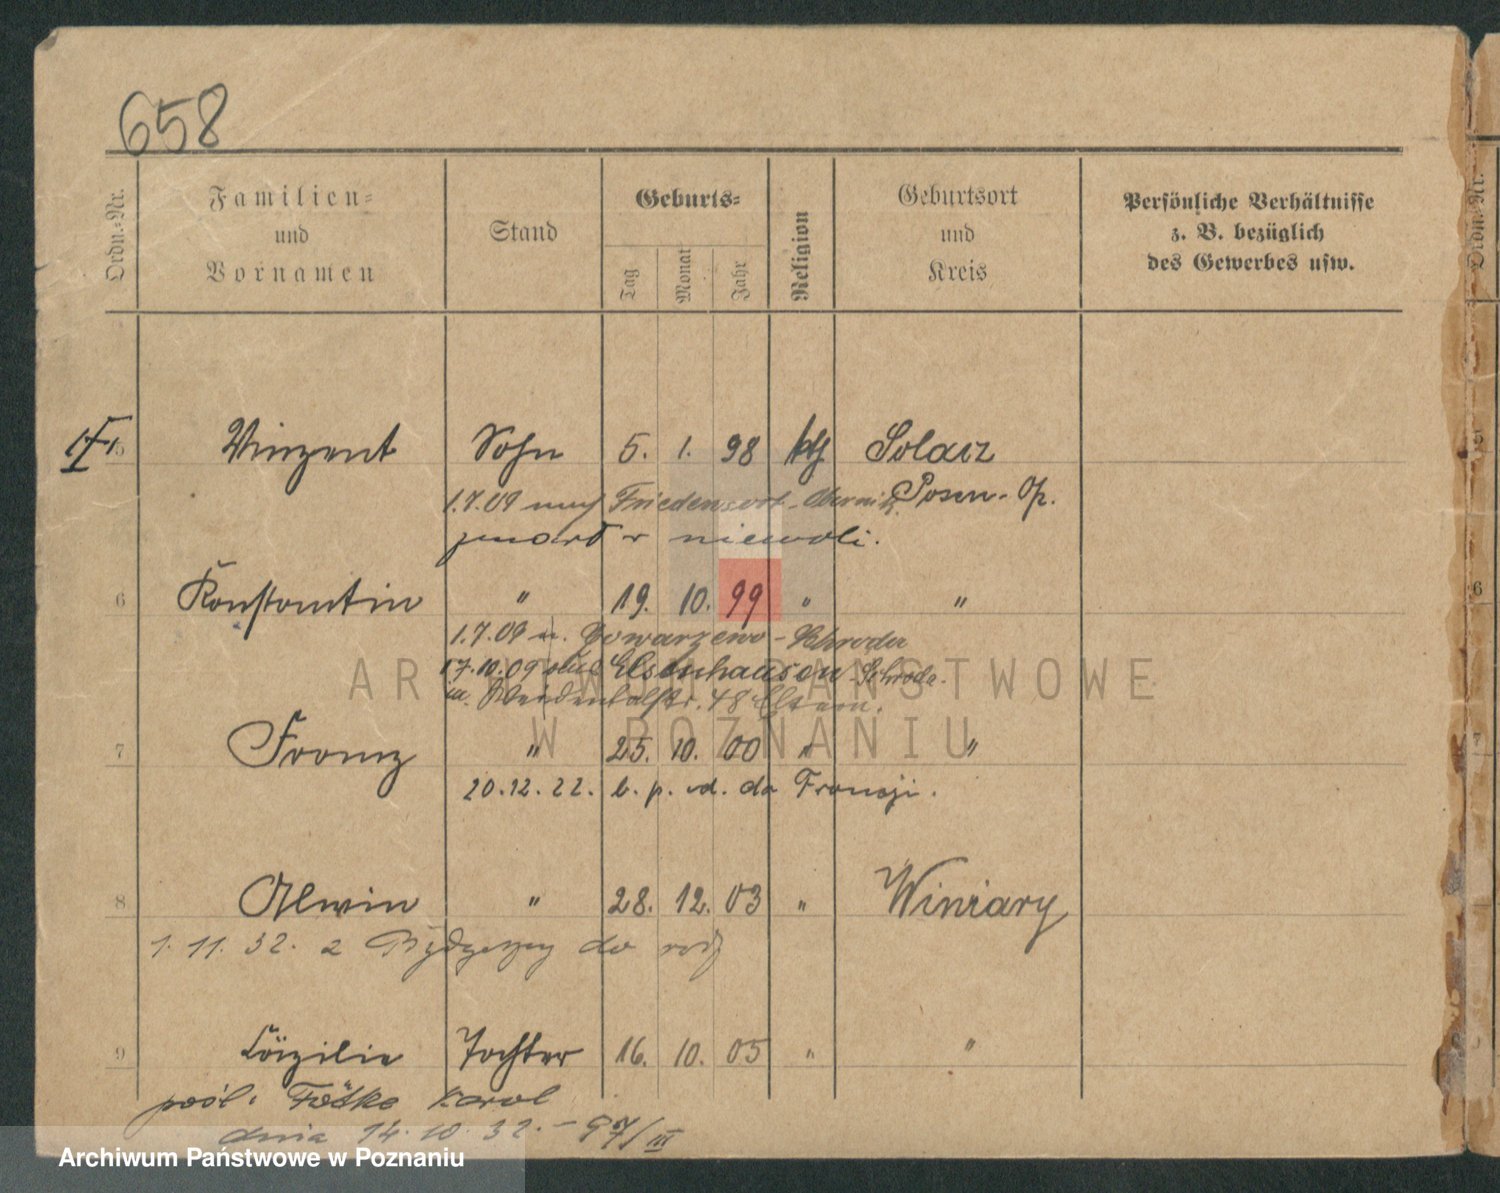 658
Ordn.-Nr.
Familien-
und
Vornamen
Stand
Geburts-
Tag
Monat
Jahr
Religion
Geburtsort
und
Kreis
Persönliche Verhältnisse
z. B. bezüglich
des Gewerbes usw.
Ordn.-Nr.
5 Vinzent Sohn 5. 1. 98 kth Solacz
1.7.09 nach Friedensort - Posen-Op.
zmarł w niewoli.
6 Konstantin " 19. 10. 99 " "
1.7.09 n. Gowarzewo - Schroda
17.10.09 Elsenhausen - Schroda.
48 Eltern.
ARCHIWUM PAŃSTWOWE
W POZNANIU
7 Franz " 25. 10. 00 " "
20.12.22. b. p. d. do Francji.
8 Alwin " 28. 12. 03 " Winiary
1. 11. 32. z Bydgoszczy do
9 Cäzilie Tochter 16. 10. 05 " "
pośl. Karol
dnia 14.10.32. - 97/III
Archiwum Państwowe w Poznaniu
5
6
7